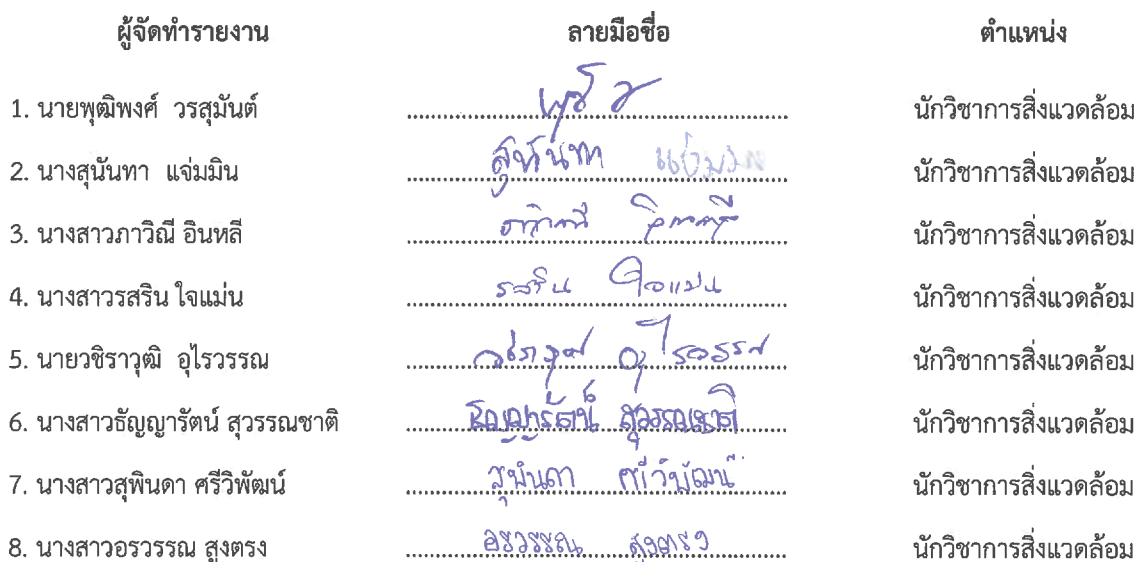 ผู้จัดทำรายงาน ลายมือชื่อ ตำแหน่ง
1. นายพุฒิพงศ์ วรสุมันต์ นักวิชาการสิ่งแวดล้อม
2. นางสุนันทา แจ่มมิน สุนันทา แจ่มมิน นักวิชาการสิ่งแวดล้อม
3. นางสาวภาวิณี อินหลี ภาวิณี อินหลี นักวิชาการสิ่งแวดล้อม
4. นางสาวรสริน ใจแม่น รสริน ใจแม่น นักวิชาการสิ่งแวดล้อม
5. นายวชิราวุฒิ อุไรวรรณ วชิราวุฒิ อุไรวรรณ นักวิชาการสิ่งแวดล้อม
6. นางสาวธัญญารัตน์ สุวรรณชาติ ธัญญารัตน์ สุวรรณชาติ นักวิชาการสิ่งแวดล้อม
7. นางสาวสุพินดา ศรีวิพัฒน์ สุพินดา ศรีวิพัฒน์ นักวิชาการสิ่งแวดล้อม
8. นางสาวอรวรรณ สูงตรง อรวรรณ สูงตรง นักวิชาการสิ่งแวดล้อม